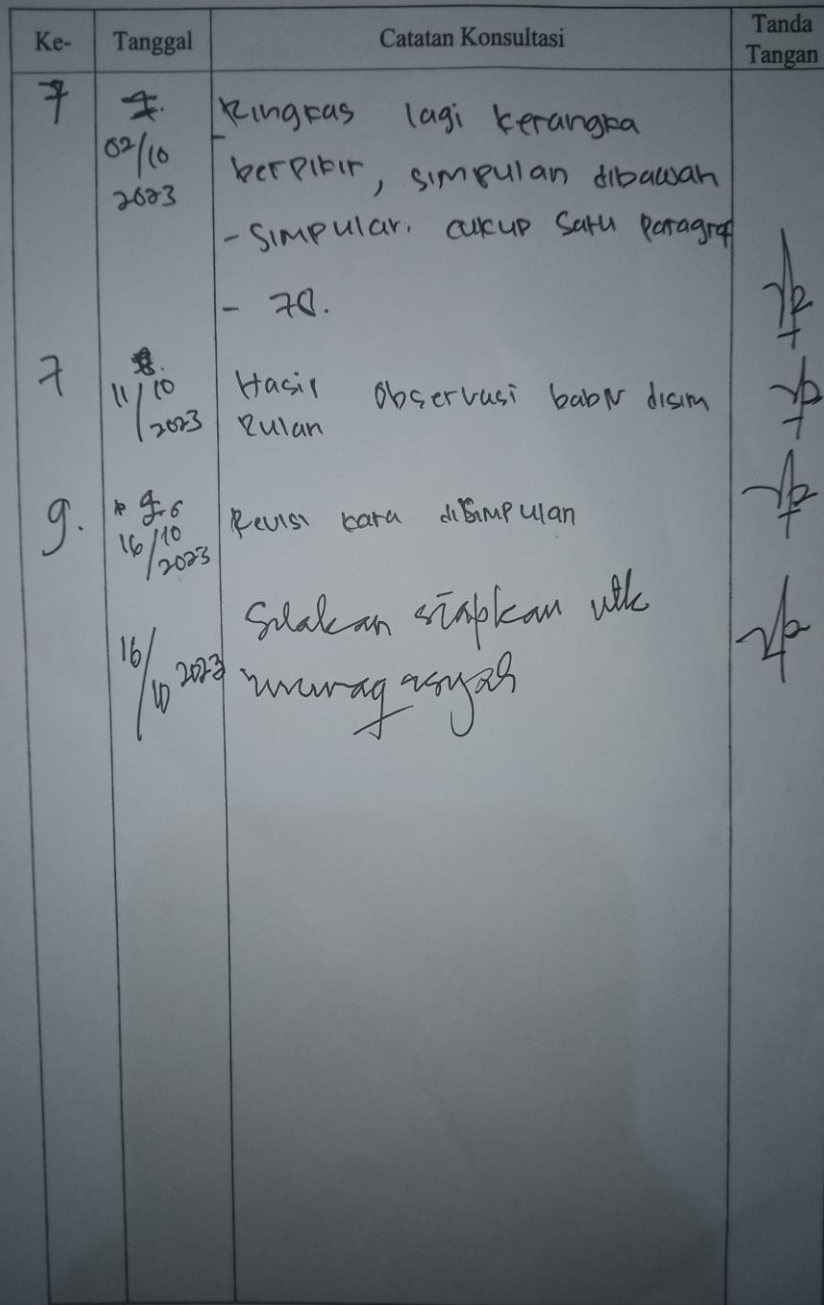 Ke- Tanggal Catatan Konsultasi Tanda Tangan
7 02/10 2023 - Ringkas lagi kerangka
berpikir, simpulan dibawah
- Simpular. cukup satu paragraf
- 70.
7 11/10 2023 Hasil Observasi bab IV disim
pulan
9. 16/10 2023 Revisi kata disimpulan
16/10 2023 Silakan siapkan utk
munaqasyah